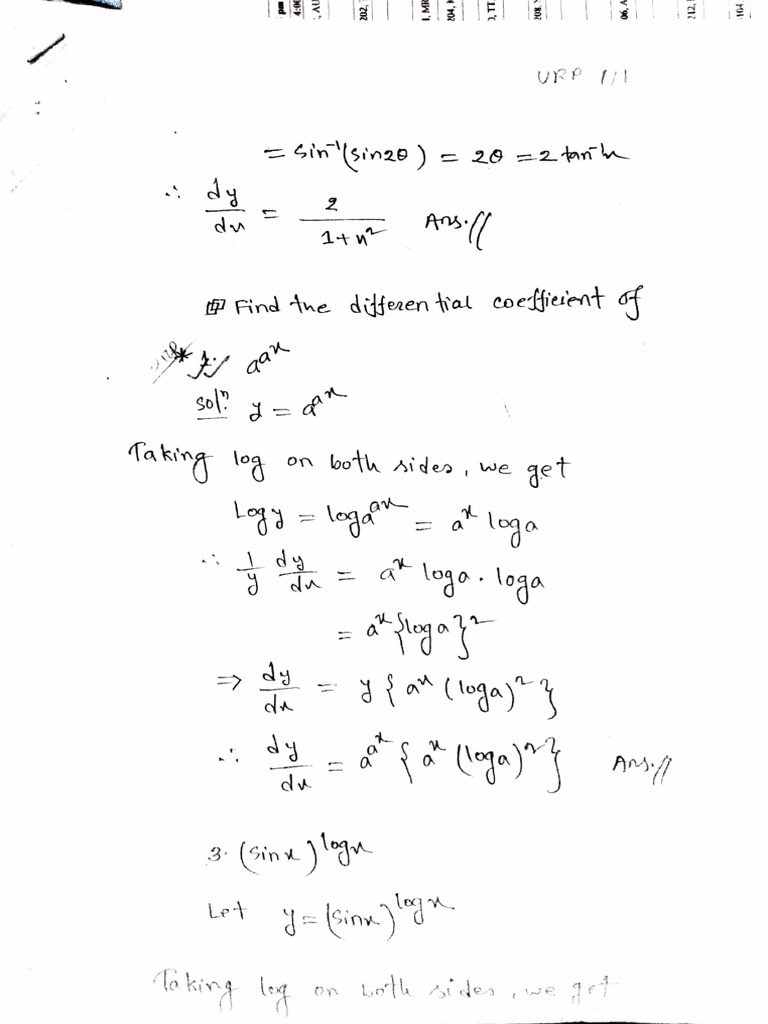 pm
4:00
, AU
202,
I, MR
204,
), TT,
208,
06, A
212,
164,
URP 1/1
= sin⁻¹(sin2θ) = 2θ = 2 tan⁻¹x
∴ dy/dx = 2/(1+x²) Ans.//
Find the differential coefficient of
* 1. a^a^x
Solⁿ y = a^a^x
Taking log on both sides, we get
Logy = loga^a^x = a^x loga
∴ 1/y dy/dx = a^x loga . loga
= a^x {loga}²
⇒ dy/dx = y { a^x (loga)² }
∴ dy/dx = a^a^x { a^x (loga)² } Ans.//
3. (sinx)^logx
Let y = (sinx)^logx
Taking log on both sides, we get